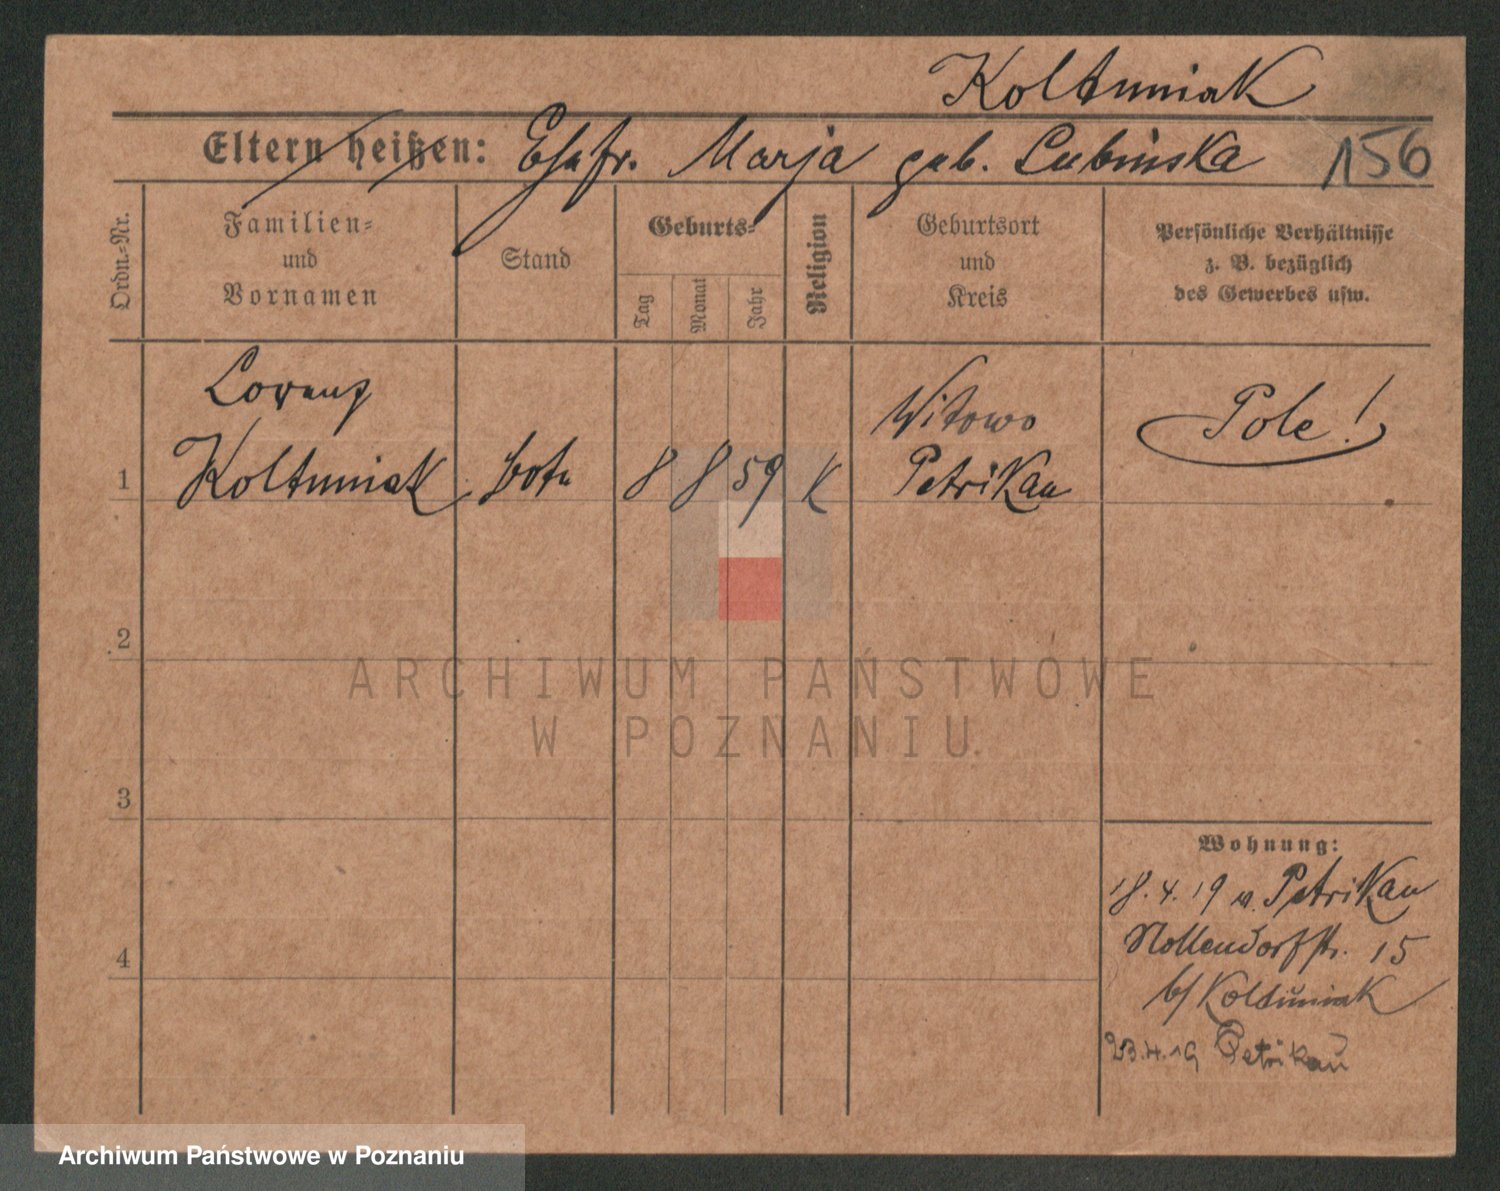 Koltuniak
Eltern heißen: Ehefr. Marja geb. Lubinska 156
Ordn.-Nr.
Familien-
und
Vornamen
Stand
Geburts-
Tag
Monat
Jahr
Religion
Geburtsort
und
Kreis
Persönliche Verhältnisse
z. B. bezüglich
des Gewerbes usw.
Lorenz
Witowo
Pole!
1 Koltuniak Bote 8 8 59 K Petrikau
2
ARCHIWUM PAŃSTWOWE
W POZNANIU
3
Wohnung:
18.4.19 v. Petrikau
Nollendorfstr. 15
b/ Koltuniak
4
23.4.19 Petrikau
Archiwum Państwowe w Poznaniu